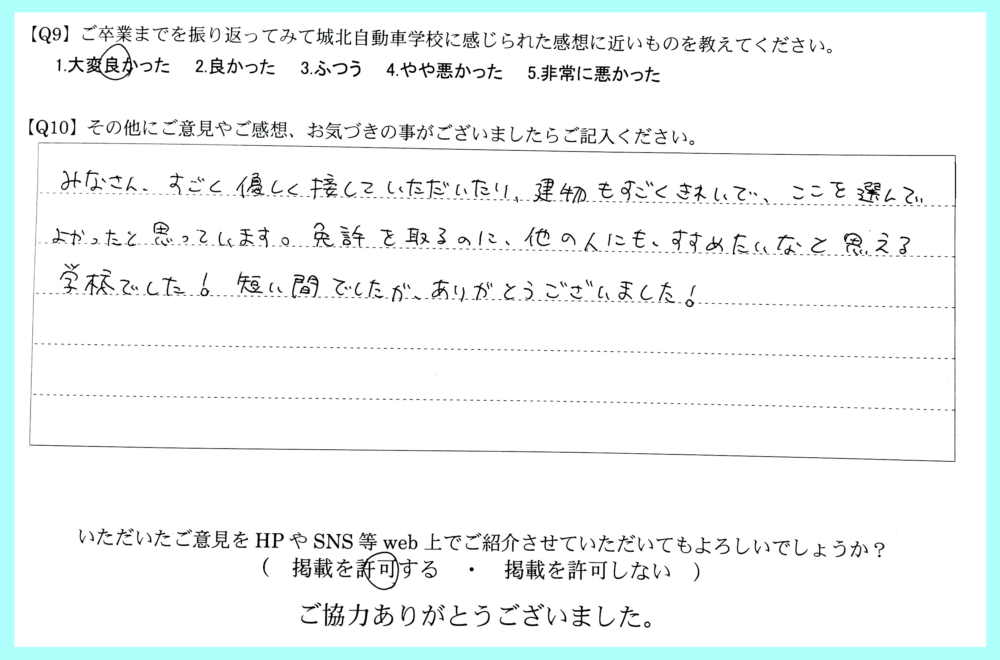 【Q9】ご卒業までを振り返ってみて城北自動車学校に感じられた感想に近いものを教えてください。
1.大変良かった 2.良かった 3.ふつう 4.やや悪かった 5.非常に悪かった
【Q10】その他にご意見やご感想、お気づきの事がございましたらご記入ください。
みなさん、すごく優しく接していただいたり、建物もすごくきれいで、ここを選んで
よかったと思っています。免許を取るのに、他の人にも、すすめたいなと思える
学校でした！短い間でしたが、ありがとうございました！
いただいたご意見をHPやSNS等web上でご紹介させていただいてもよろしいでしょうか？
（ 掲載を許可する ・ 掲載を許可しない ）
ご協力ありがとうございました。